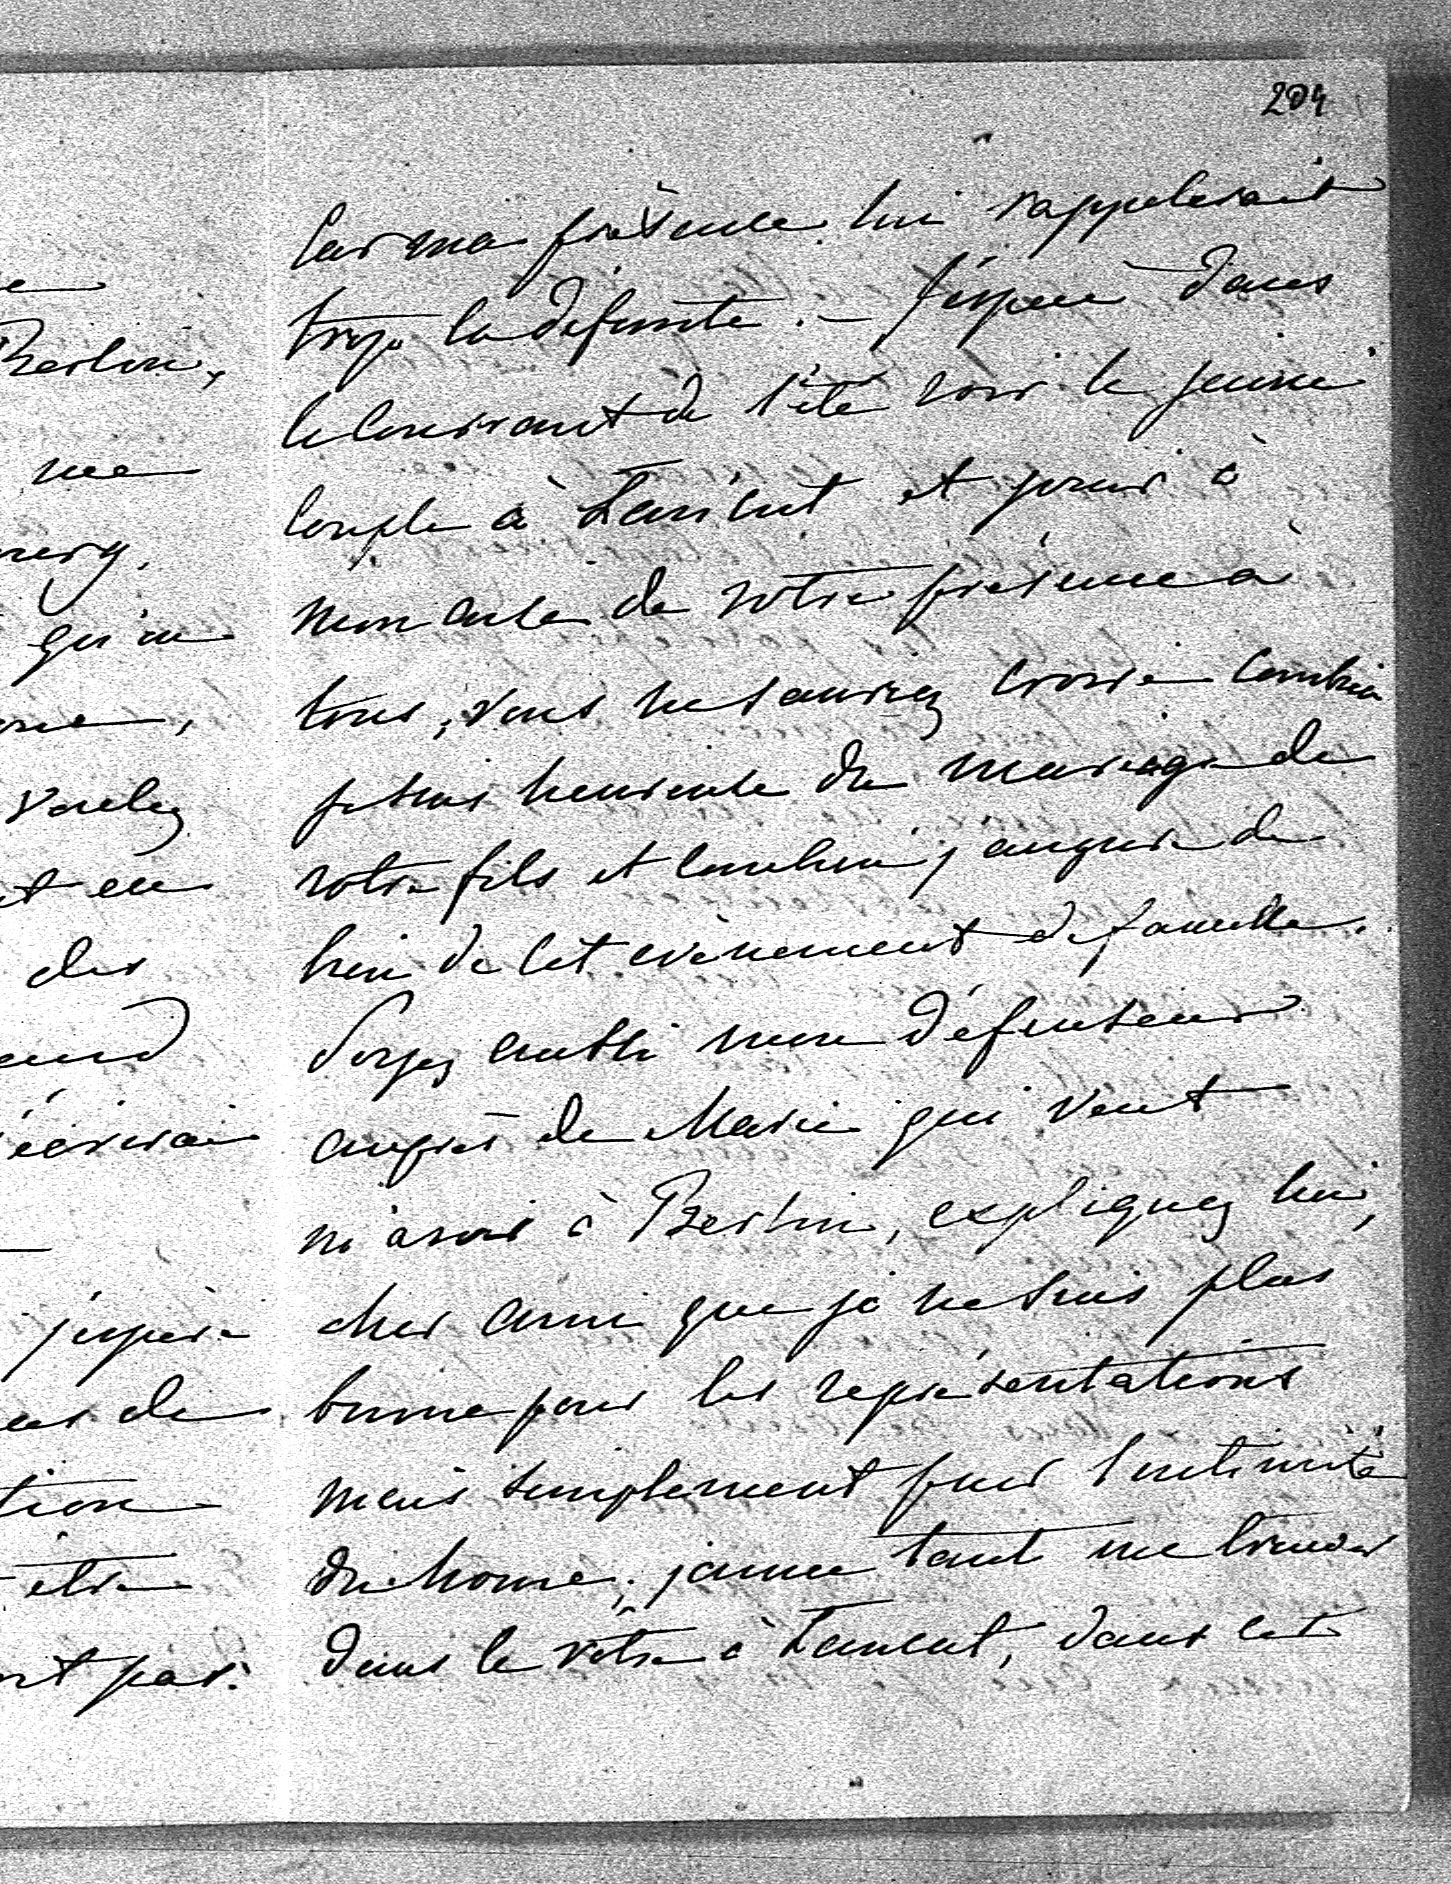 204
Car ma présence lui rappelerait
trop la défunte. – J'espère dans
le courrant de l'été voir le jeune
couple à Łańcut et jouir à
mon aise de votre présence à
tous, vous ne sauriez croire combien
je suis heureuse du mariage de
votre fils et combien j'augure de
bien de cet evènement de famille.
Soyez aussi mon défenseur
auprès de Marie qui veut
m'avoir à Berlin, expliquez lui,
cher ami que je ne suis plus
bonne pour les représentations
mais simplement pour l'intimité
du home; j'aime tant me trouver
dans le vôtre à Łancut, dans cet
e
Berlin,
me
qu'en
voulez
t en
des
écrirai
j'espère
de
tion
être
nt pas.